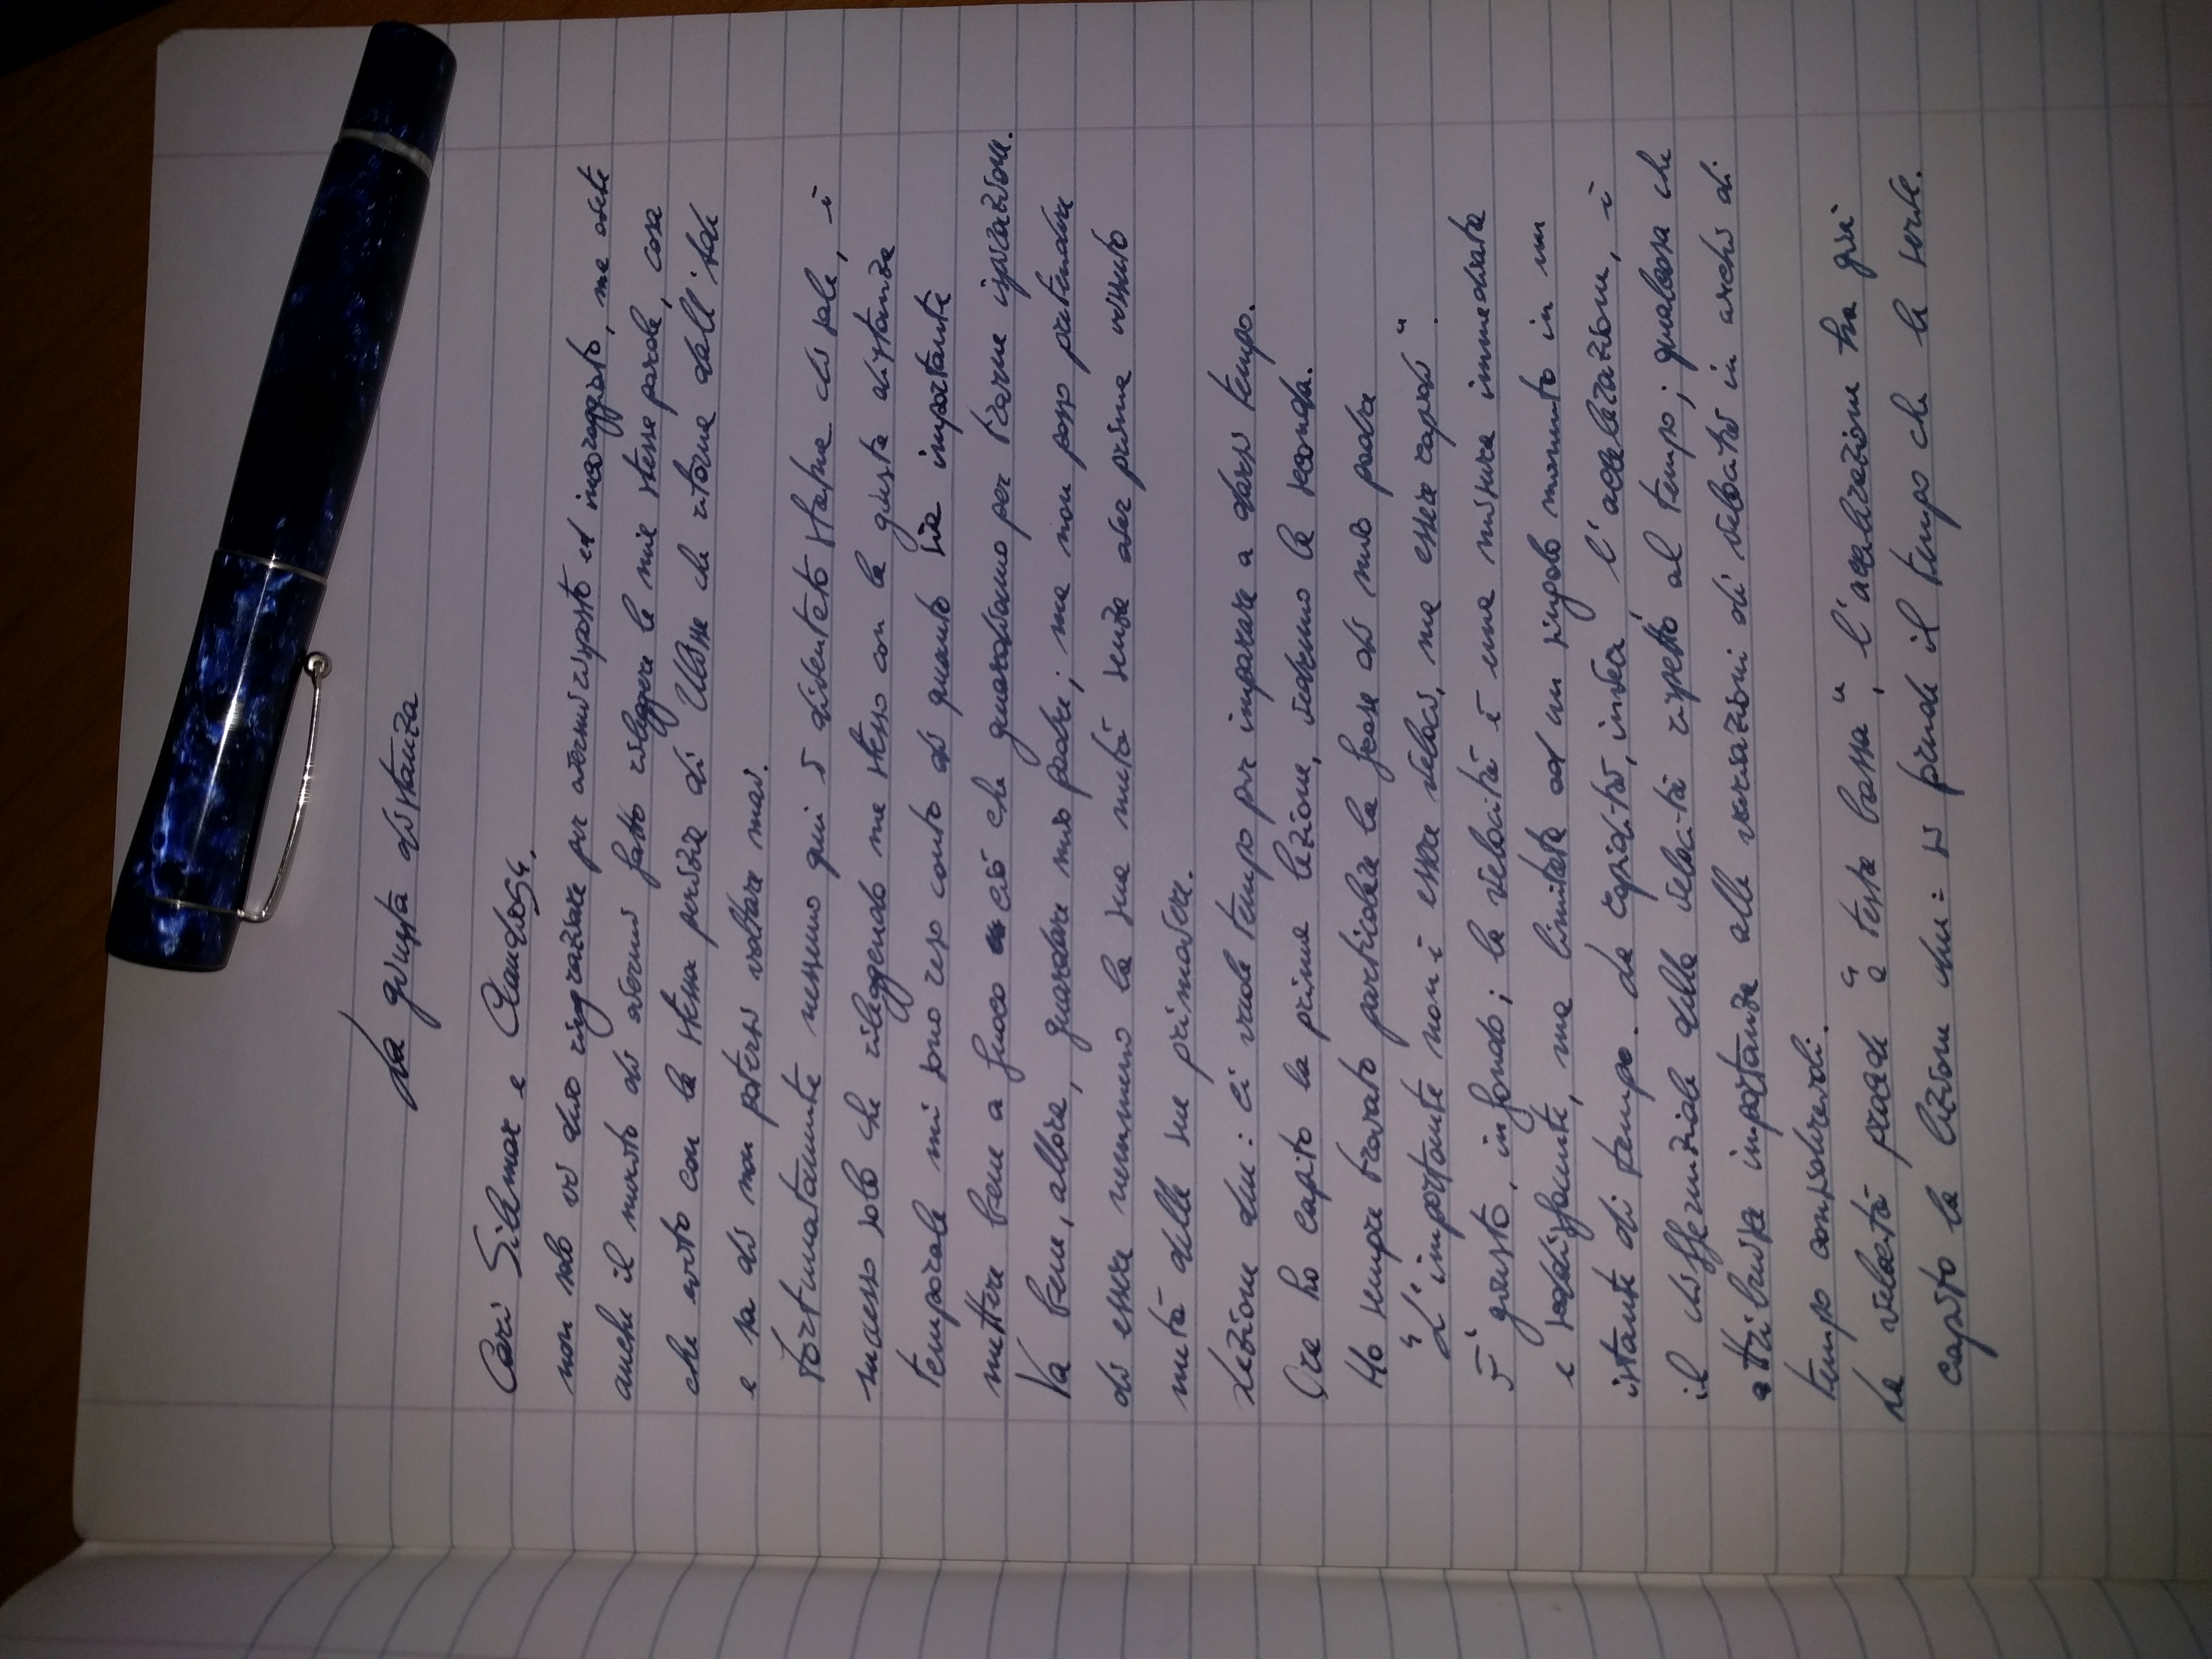 La giusta distanza
Cari Silemar e Claudio54,
non solo vi devo ringraziare per avermi risposto ed incoraggiato, ma avete
anche il merito di avermi fatto rileggere le mie stesse parole, cosa
che evito con la stessa perizia di Ulisse che ritorna dall'Ade
e sa di non potersi voltare mai.
Fortunatamente nessuno qui è diventato statua di sale, è
successo solo che rileggendo me stesso con la giusta distanza
temporale mi sono reso conto di quanto sia importante
mettere bene a fuoco ciò che guardiamo per trarne ispirazione.
Va bene, allora, guardare mio padre; ma non posso pretendere
di essere nemmeno la sua metà senza aver prima vissuto
metà delle sue primavere.
Lezione due: ci vuole tempo per imparare a darsi tempo.
Ora ho capito la prima lezione, vedremo la seconda.
Ho sempre trovato particolare la frase di mio padre
"L'importante non è essere veloci, ma essere rapidi".
È giusto, in fondo; la velocità è una misura immediata
e soddisfacente, ma limitata ad un singolo momento in un
istante di tempo. La rapidità, invece, l'accelerazione, è
il differenziale della velocità rispetto al tempo; qualcosa che
attribuisce importanza alle variazioni di velocità in archi di
tempo considerevoli.
La velocità procede "a testa bassa", l'accelerazione ha già
capito la lezione due: si prende il tempo che le serve.